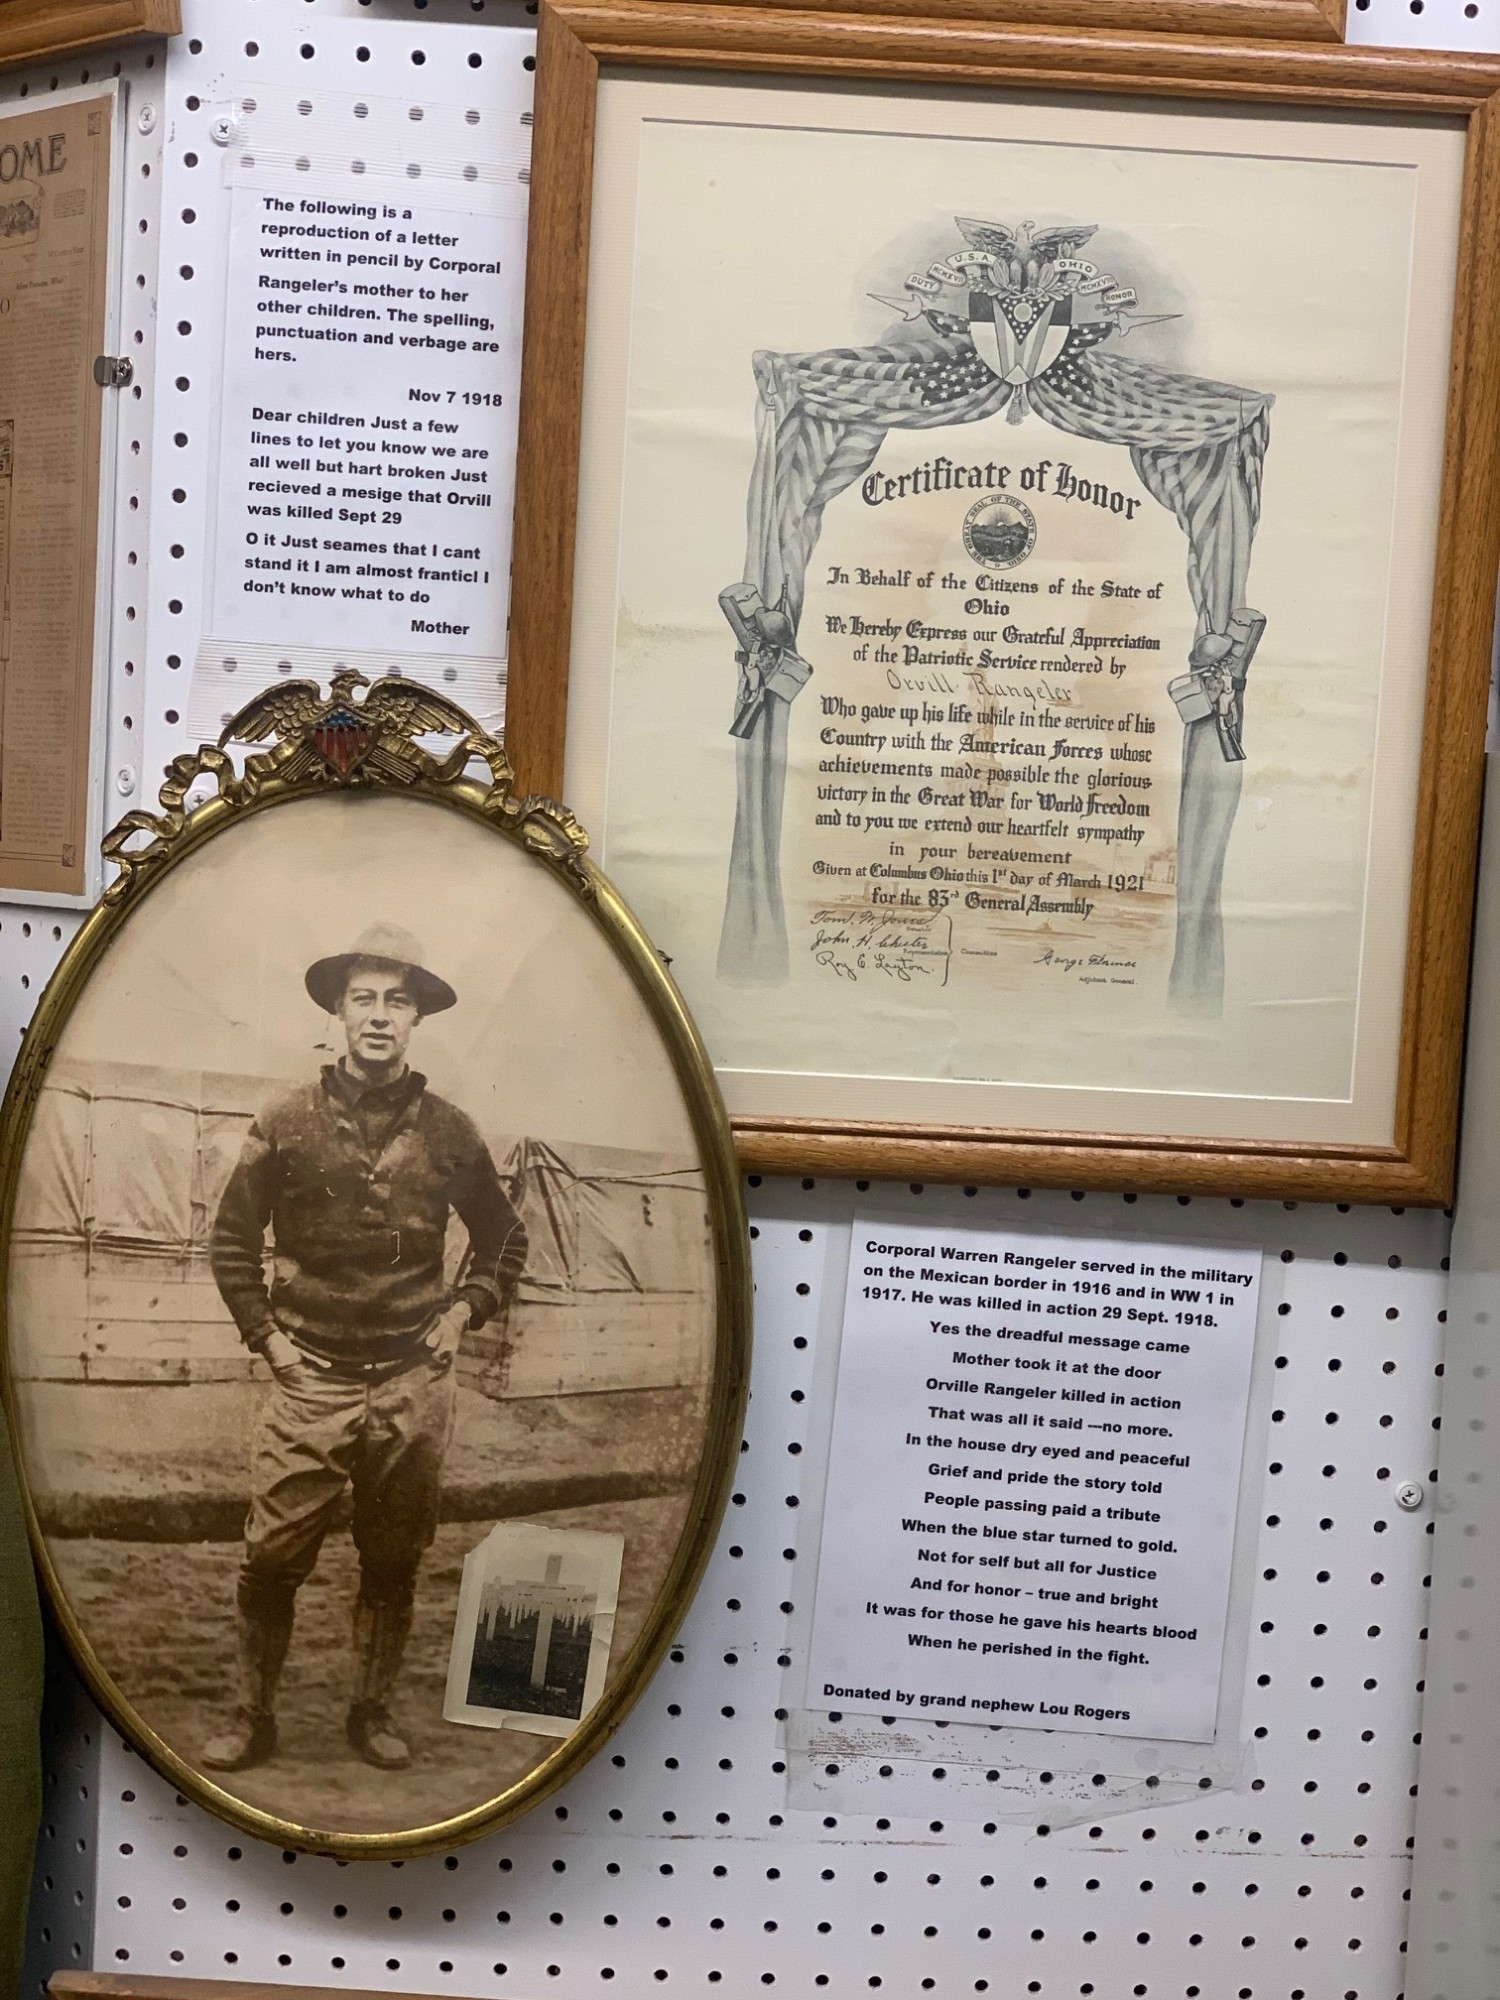 OME
The following is a
reproduction of a letter
written in pencil by Corporal
Rangeler's mother to her
other children. The spelling,
punctuation and verbage are
hers.
Nov 7 1918
Dear children Just a few
lines to let you know we are
all well but hart broken Just
recieved a mesige that Orvill
was killed Sept 29
O it Just seames that I cant
stand it I am almost franticl I
don't know what to do
Mother
DUTY MCMXVII U.S.A. OHIO MCMXVIII HONOR
Certificate of Honor
THE GREAT SEAL OF THE STATE OF OHIO
In Behalf of the Citizens of the State of
Ohio
We Hereby Express our Grateful Appreciation
of the Patriotic Service rendered by
Orvill Rangeler
Who gave up his life while in the service of his
Country with the American Forces whose
achievements made possible the glorious
victory in the Great War for World Freedom
and to you we extend our heartfelt sympathy
in your bereavement
Given at Columbus Ohio this 1st day of March 1921
for the 83rd General Assembly
Tom. W. Jones
Senator
John. H. Chester
Representative
Roy E. Layton.
Committee
George Florence
Adjutant General.
Corporal Warren Rangeler served in the military
on the Mexican border in 1916 and in WW 1 in
1917. He was killed in action 29 Sept. 1918.
Yes the dreadful message came
Mother took it at the door
Orville Rangeler killed in action
That was all it said ---no more.
In the house dry eyed and peaceful
Grief and pride the story told
People passing paid a tribute
When the blue star turned to gold.
Not for self but all for Justice
And for honor – true and bright
It was for those he gave his hearts blood
When he perished in the fight.
Donated by grand nephew Lou Rogers